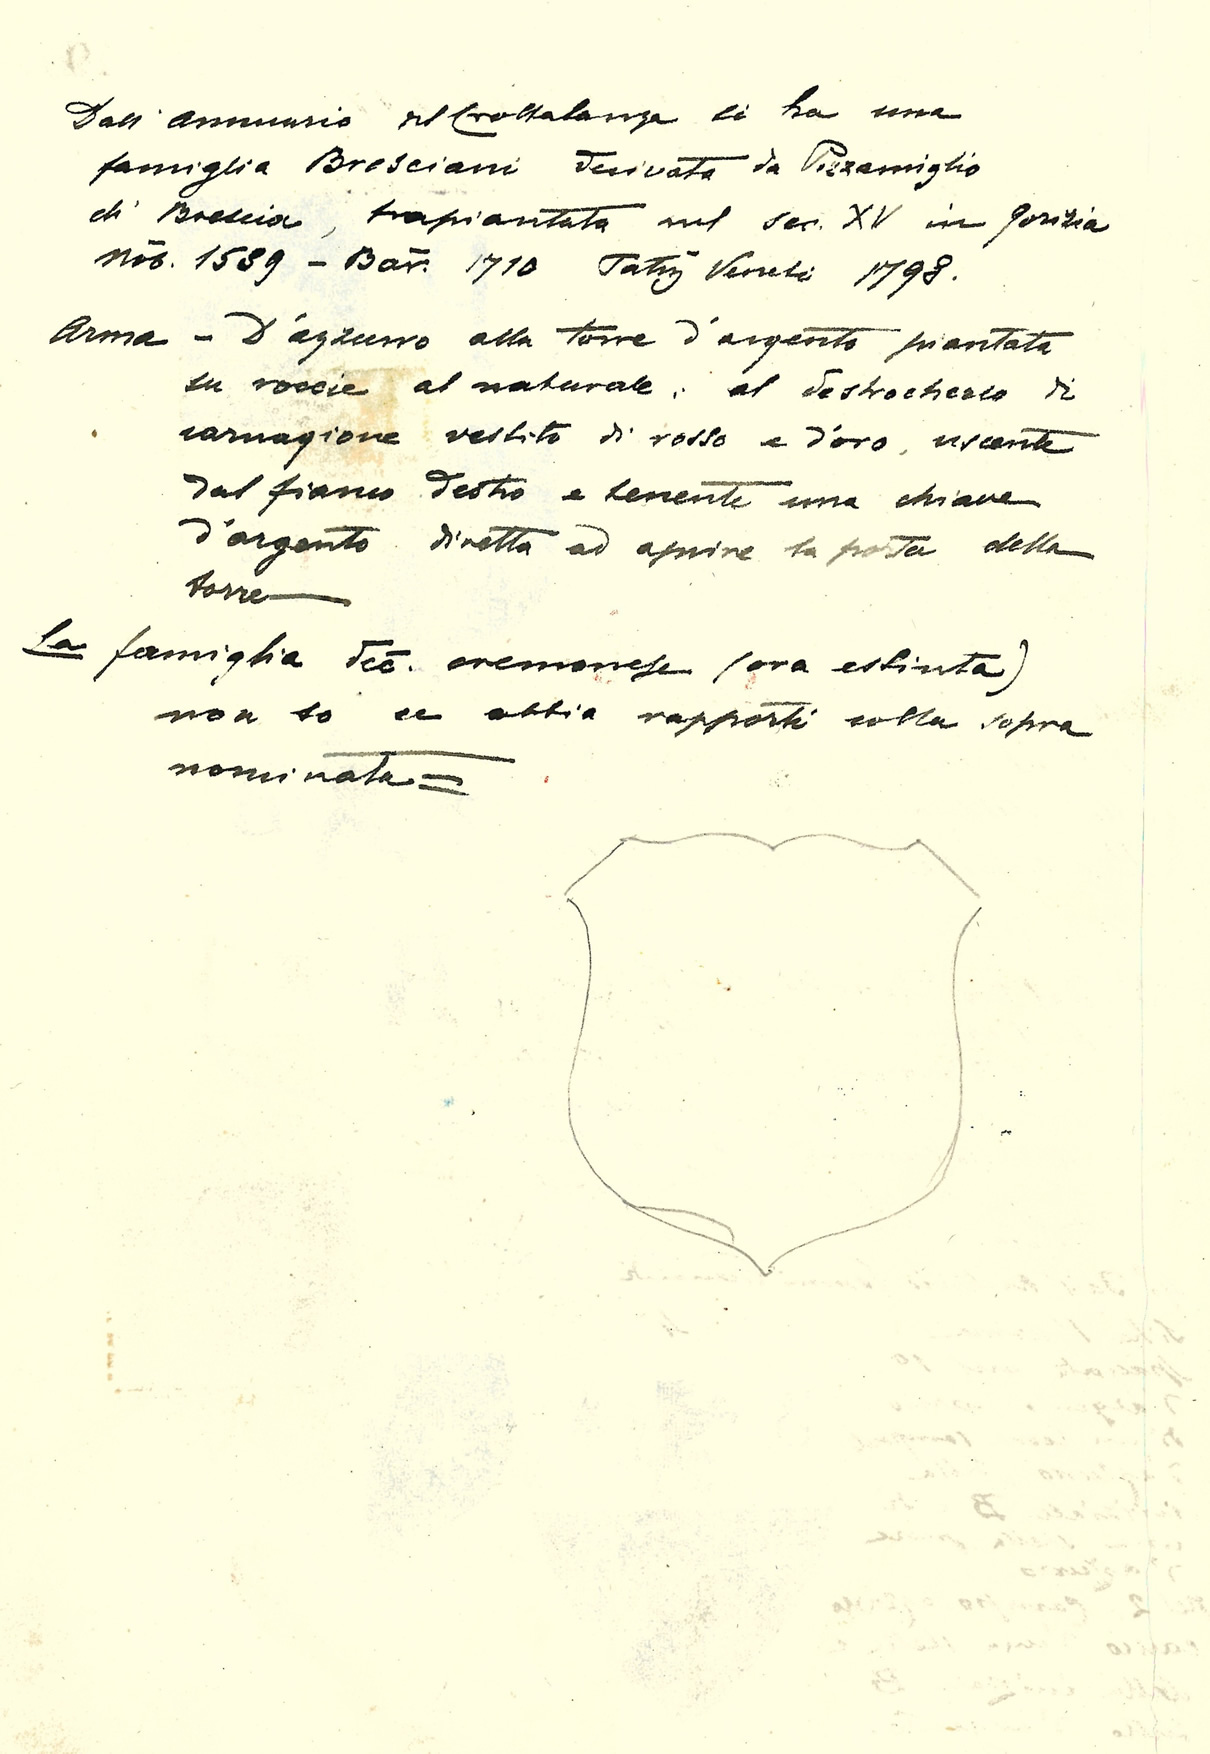 Dall'annuario del Crollalanza si ha una
famiglia Bresciani derivata da Pizzamiglio
di Brescia, trapiantata nel sec. XV in Gorizia
Nob. 1589 - Bar. 1710 Patrizi Veneti 1798.
Arma - D'azzurro alla torre d'argento piantata
su roccie al naturale; al destrocherio di
carnagione vestito di rosso e d'oro, uscente
dal fianco destro e tenente una chiave
d'argento diretta ad aprire la porta della
torre
La famiglia dec. cremonese (ora estinta)
non so se abbia rapporti colla sopra
nominata